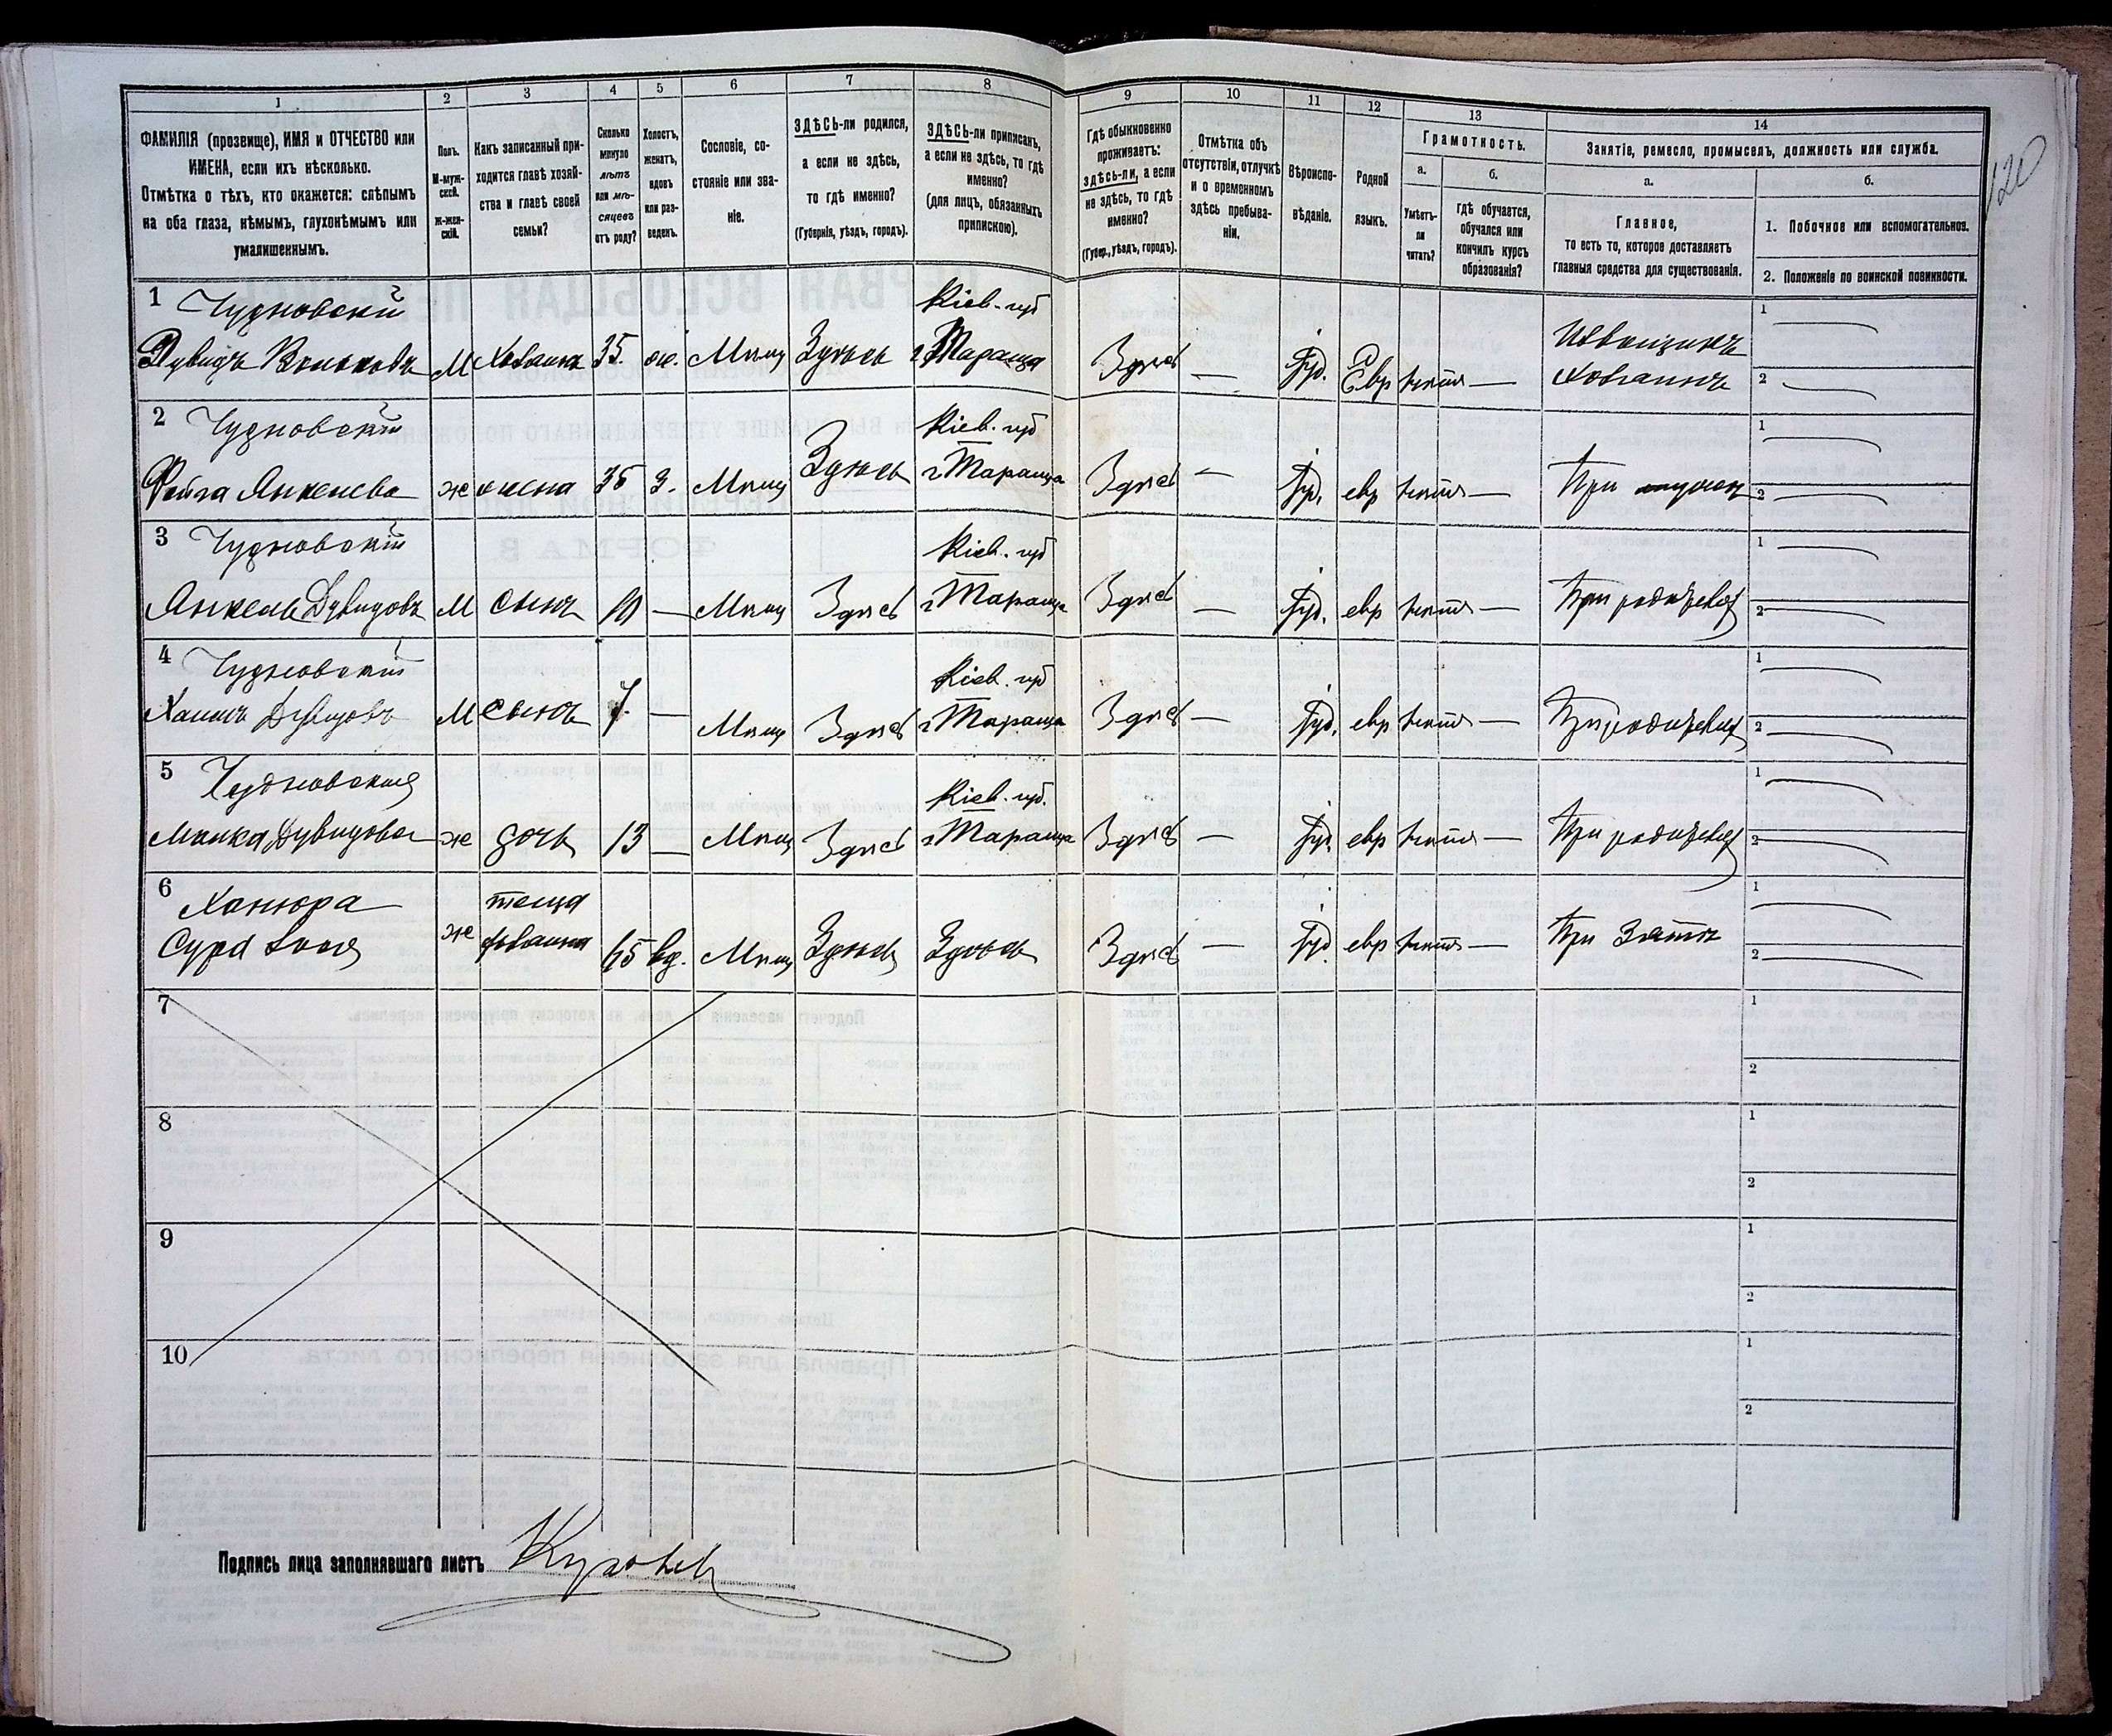 120
1
ФАМИЛІЯ (прозвище), ИМЯ и ОТЧЕСТВО или
ИМЕНА, если ихъ нѣсколько.
Отмѣтка о тѣхъ, кто окажется: слѣпымъ
на оба глаза, нѣмымъ, глухонѣмымъ или
умалишеннымъ.
2
Полъ.
М-муж-
ской.
Ж-жен-
скій.
3
Какъ записанный при-
ходится главѣ хозяй-
ства и главѣ своей
семьи?
4
Сколько
минуло
лѣтъ
или мѣ-
сяцевъ
отъ роду?
5
Холостъ,
женатъ,
вдовъ
или раз-
веденъ.
6
Сословіе, со-
стояніе или зва-
ніе.
7
ЗДѢСЬ-ли родился,
а если не здѣсь,
то гдѣ именно?
(Губернія, уѣздъ, городъ).
8
ЗДѢСЬ-ли приписанъ,
а если не здѣсь, то гдѣ
именно?
(для лицъ, обязанныхъ
припискою).
9
Гдѣ обыкновенно
проживаетъ:
здѣсь-ли, а если
не здѣсь, то гдѣ
именно?
(Губер., уѣздъ, городъ).
10
Отмѣтка объ
отсутствіи, отлучкѣ
и о временномъ
здѣсь пребыва-
ніи.
11
Вѣроиспо-
вѣданіе.
12
Родной
языкъ.
13
Грамотность.
а.
Умѣетъ-
ли
читать?
б.
Гдѣ обучается,
обучался или
кончилъ курсъ
образованія?
14
Занятіе, ремесло, промыселъ, должность или служба.
а.
Главное,
то есть то, которое доставляетъ
главныя средства для существованія.
б.
1. Побочное или вспомогательное.
2. Положеніе по воинской повинности.
1 Чудновскій Кіев. губ Извощикъ 1
Дувидъ М Хозяинъ 35. ж. Мѣщ Здѣсь г Тараща Здѣсь — Іуд. Евр нѣтъ — хозяинъ 2
2 Чудновскій Кіев. губ 1
Фейга Янкелева ж жена 35 З. Мѣщ Здѣсь г Тараща Здѣсь — Іуд. евр нѣтъ — При мужѣ 2
3 Чудновскій Кіев. губ 1
Янкель Дувидовъ М сынъ 10 — Мѣщ Здѣсь г Тараща Здѣсь — Іуд. евр нѣтъ — При родителях 2
4 Чудновскій Кіев. губ 1
Хаимъ Дувидовъ М сынъ 7. — Мѣщ Здѣсь г Тараща Здѣсь — Іуд. евр нѣтъ — При родителях 2
5 Чудновская Кіев. губ. 1
Дувидова ж дочь 13 — Мѣщ Здѣсь г Тараща Здѣсь — Іуд. евр нѣтъ — При родителях 2
6 теща 1
Сура ж хозяина вд. Мѣщ Здѣсь Здѣсь Здѣсь — Іуд. евр нѣтъ — При Зятѣ 2
7 1
2
8 1
2
9 1
2
10 1
2
Подпись лица заполнявшаго листъ